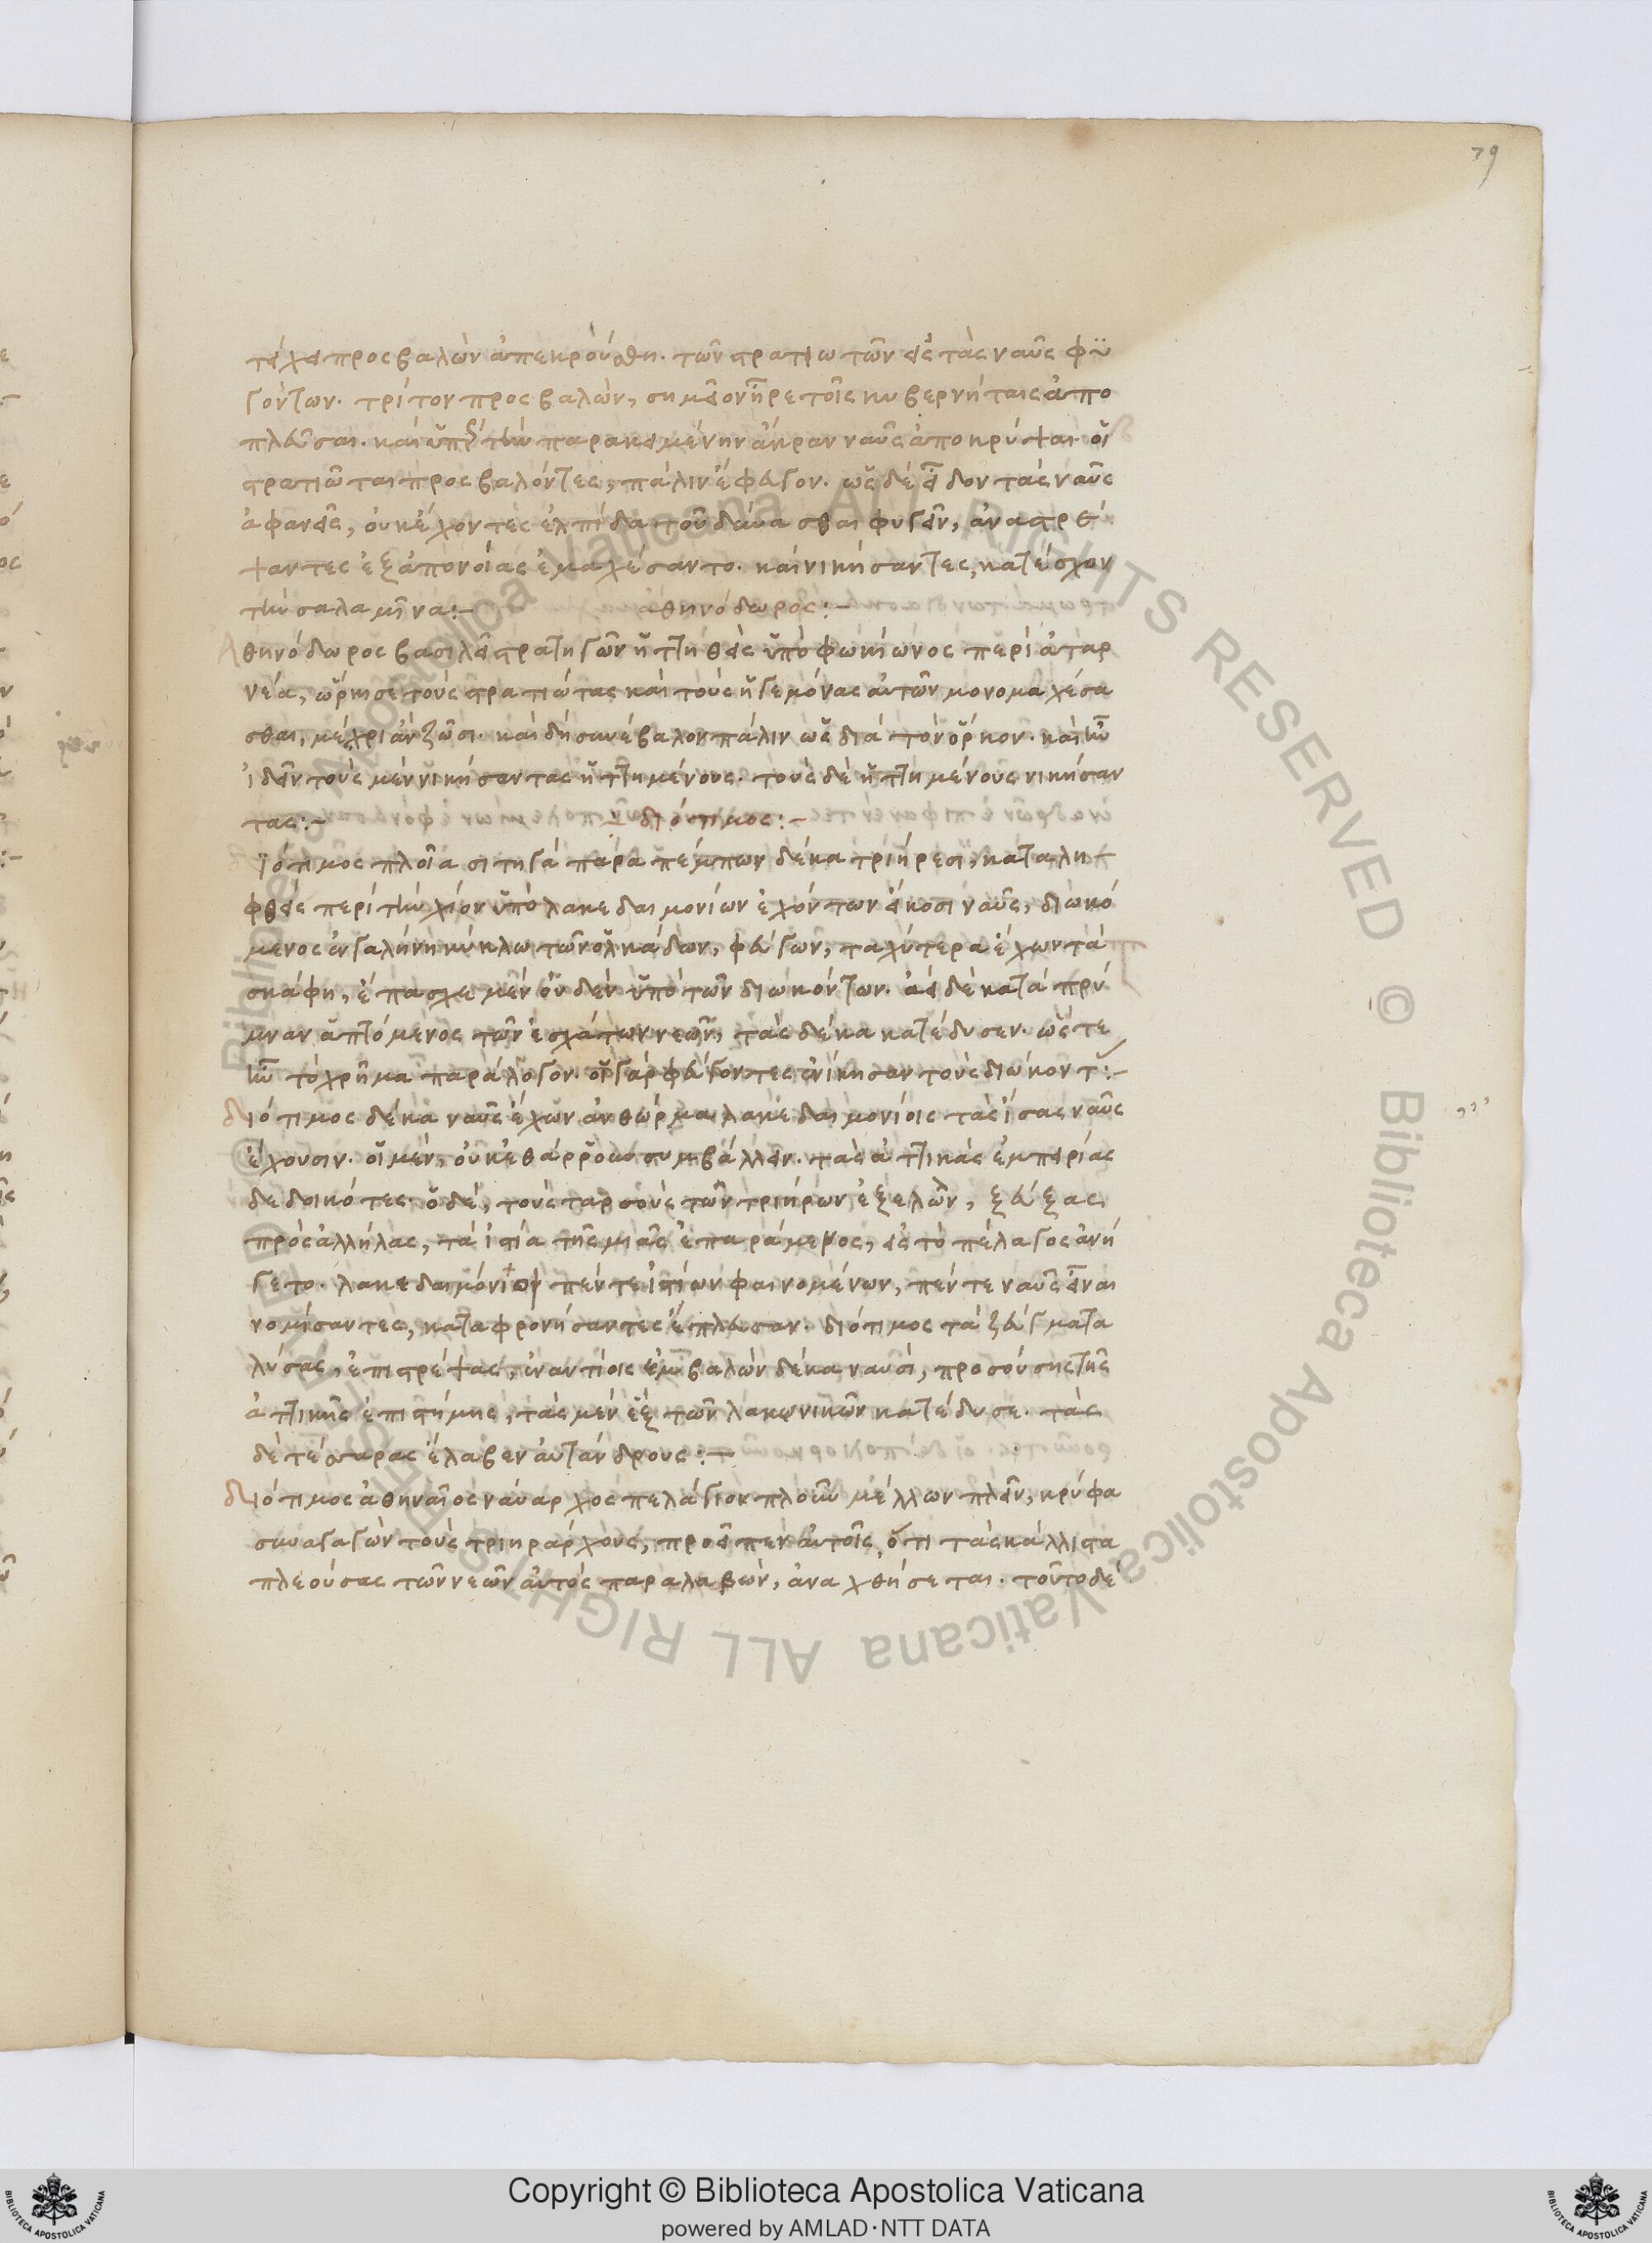 79
τείχει προσβαλὼν ἀπεκρούσθη. τῶν στρατιωτῶν εἰς τὰς ναῦς φυ
γόντων. τρίτον προσβαλὼν, σημεῖον ἦρε τοῖς κυβερνήταις ἀπο
πλεῦσαι. καὶ ὑπὸ τὴν παρακειμένην ἄκραν ναῦς ἀποκρύψαι. οἱ
στρατιῶται προσβαλόντες, πάλιν ἔφευγον. ὡς δὲ εἶδον τὰς ναῦς
ἀφανεῖς, οὐκ ἔχοντες ἐλπίδα τοῦ δύνασθαι φυγεῖν, ἀναστρέ
ψαντες ἐξ ἀπονοίας ἐμαχέσαντο. καὶ νικήσαντες, κατέσχον
τὴν σαλαμῖνα:- ἀθηνόδωρος:-
Ἀθηνόδωρος βασιλεῖ στρατηγῶν ἡττηθεὶς ὑπὸ φωκίωνος περὶ ἀταρ
νέα, ὥρκισε τοὺς στρατιώτας καὶ τοὺς ἡγεμόνας αὐτῶν μονομαχέσα
σθαι, μέχρι ἂν ζῶσι. καὶ δὴ συνέβαλον πάλιν ὡς διὰ τὸν ὅρκον. καὶ ἦν
ἰδεῖν τοὺς μὲν νικήσαντας ἡττημένους. τοὺς δὲ ἡττημένους νικήσαν
τας:- διότιμος:-
ϊότιμος πλοῖα σιτηγὰ παραπέμπων δέκα τριήρεσι, καταλη
φθεὶς περὶ τὴν χίον ὑπὸ λακεδαιμονίων ἐχόντων εἴκοσι ναῦς, διωκό
μενος ἐν γαλήνη κύκλω τῶν ὁλκάδων, φεύγων, ταχύτερα ἔχων τὰ
σκάφη, ἔπασχε μὲν οὐδὲν ὑπὸ τῶν διωκόντων. ἀεὶ δὲ κατὰ πρύ
μναν ἁπτόμενος τῶν ἐσχάτων νεῶν, τὰς δέκα κατέδυσεν. ὥστε
ἦν τὸ χρῆμα παράλογον. οἱ γὰρ φεύγοντες ἐνίκησαν τοὺς διώκοντ:-
διότιμος δέκα ναῦς ἔχων ἀνθώρμει λακεδαιμονίοις τὰς ἴσας ναῦς
ἔχουσιν. οἱ μὲν, οὐκ ἐθάρρουν συμβάλλειν. τὰς ἀττικὰς ἐμπειρίας
δεδοικότες. ὁ δὲ, τοὺς ταρσοὺς τῶν τριήρων ἐξελὼν, ζεύξας
πρὸς ἀλλήλας, τὰ ἱστία τῆς μιᾶς ἐπαράμενος, εἰς τὸ πέλαγος ἀνή
γετο. λακεδαιμόνιοι πέντε ἱστίων φαινομένων, πέντε ναῦς εἶναι
νομίσαντες, καταφρονήσαντες ἔπλευσαν. διότιμος τὰ ζεύγματα
λύσας, ἐπιστρέψας, ἐναντίοις ἐμβαλὼν δέκα ναυσὶ, προσούσης τῆς
ἀττικῆς ἐπιστήμης, τὰς μὲν ἓξ τῶν λακωνικῶν κατέδυσε. τὰς
δὲ τέσσαρας ἔλαβεν αὐτάνδρους:-
διότιμος ἀθηναῖος ναύαρχος πελάγιον πλοῦν μέλλων πλεῖν, κρύφα
συναγαγὼν τοὺς τριηράρχους, προεῖπεν αὐτοῖς, ὅτι τὰς κάλλιστα
πλεούσας τῶν νεῶν αὐτὸς παραλαβὼν, ἀναχθήσεται. τοῦτο δὲ
Copyright © Biblioteca Apostolica Vaticana
powered by AMLAD·NTT DATA